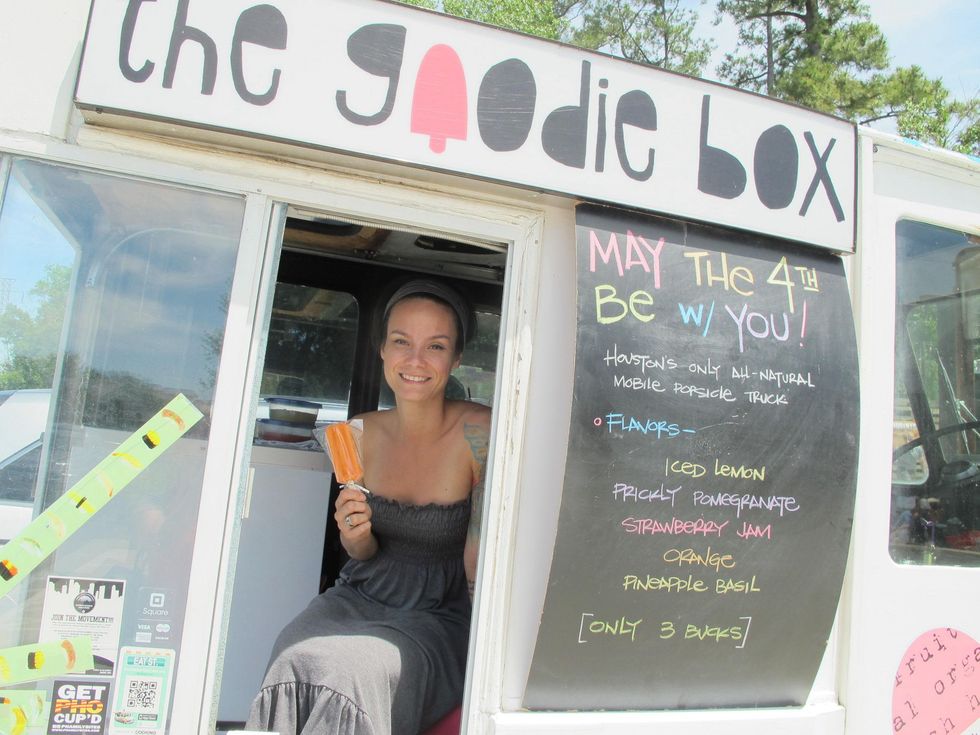 the goodie box
MAY THE 4TH
BE W/ YOU!
HOUSTON'S ONLY ALL-NATURAL
MOBILE POPSICLE TRUCK
FLAVORS-
ICED LEMON
PRICKLY POMEGRANATE
STRAWBERRY JAM
ORANGE
PINEAPPLE BASIL
[ONLY 3 BUCKS]
JOIN THE MOVEMENT!
Square
VISA
EAT ST.
GET
PHO
CUP'D
fruit
al orga